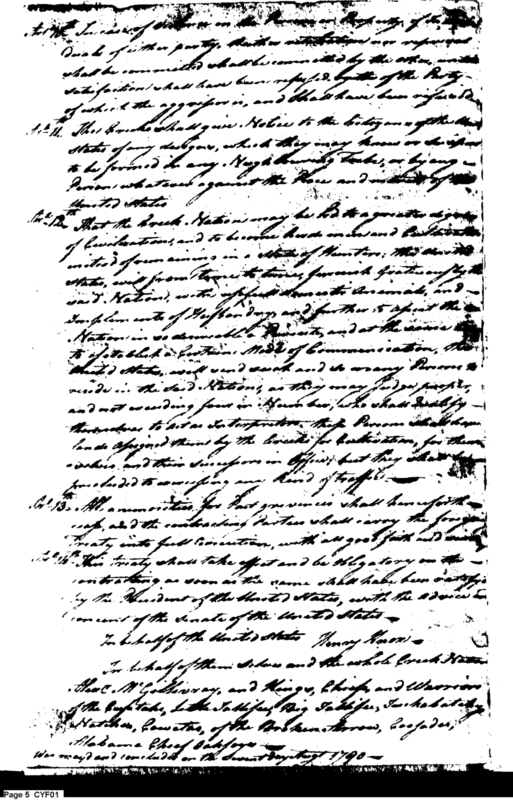 Art. 10th In case of violence on the Persons or Property of the
duals of either party. Neither retaliation nor reprisal
shall be committed shall be committed by the other, until
satisfaction shall have been refused by the Party
of which the aggressor is, and Shall have been refused
Art. 11th The Creeks shall give Notice to the Citizens of the
States of any designs, which they may know or suspect
to be formed in any Neighbouring Tribe, or by any
Person whatever against the Peace and of the
United States
Art. 12th That the Creek Nation may be led to a greater degree
of Civilization, and to become herdsmen and Cultivators
instead of remaining in a State of Hunters, the United
States, will from time to time, furnish Gratuitously the
said Nation, with usefull domestic animals, and
Implements of Husbandry, and further to assist the
Nation in so desireable a Pursuit, and at the same
to establish a Certain Mode of Communication, the
United States, will send such and so many Persons to
reside in the Said Nation, as they may Judge proper,
and not exceeding four in Number, who shall Qualify
themselves to Act as Interpreters, these Persons shall have
lands Assigned them by the Creeks for Cultivation, for them
selves and their Successors in Office, but they shall be
precluded exercising any Kind of traffic
Art. 13th All animosities for Past grievances shall henceforth
cease, and the contracting Parties shall carry the foregoing
Treaty into full Execution, with all good faith and
Art. 14th This treaty shall take effect and be Obligatory on the
contracting as soon as the same shall have been ratified
by the President of the United States, with the advice
concent of the Senate of the United States
In behalf of the United States Henry Knox
In behalf of them Selves and the whole Creek Nation
Alexr. McGillivray, and Kings, Chiefs and Warriors
of the Cusitahs, Little Tallisee, Big Tallisee, Tuckabatchy
Natchez, Cowetas, of the Broken Arrow, Coosades,
Alabama Chief
Was mayd and concluded on the Sevent day Augt 1790
Page 5 CYF01